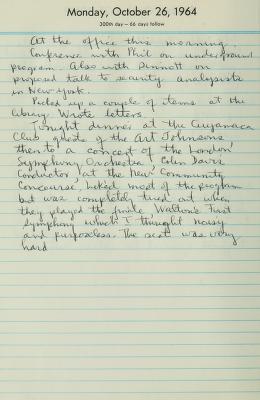 Monday, October 26, 1964
300th day — 66 days follow
At the office this morning.
Conference with Phil on underground
program. Also with Dermott on
proposed talk to security analysists
in New York.
Picked up a couple of items at the
library. Wrote letters.
Tonight dinner at the Cuyamaca
Club guests of the Art Johnsons
then to a concert of the London
Symphony Orchestra, Colin Davis
Conductor, at the new Community
Concourse. Liked most of the program
but was completely tired out when
they played the finale, Walton's First
Symphony which I thought noisy
and purposeless. The seat was very
hard